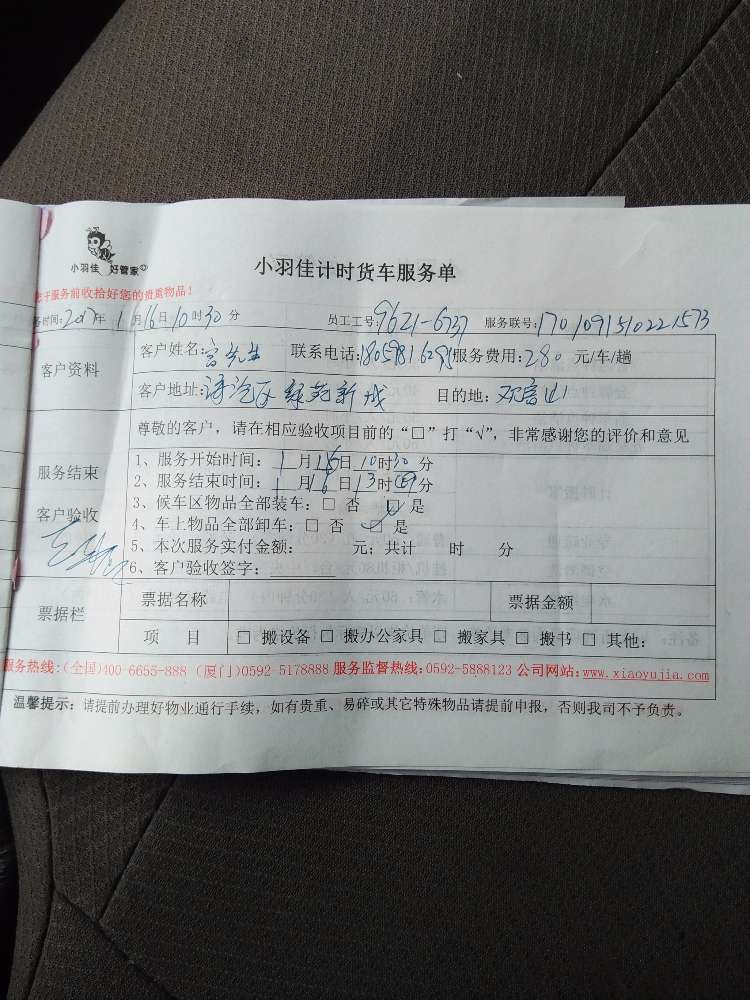 小羽佳 好管家
小羽佳计时货车服务单
于服务前收拾好您的贵重物品!
务时间:2017年1月16日10时30分 员工工号:9621-6737 服务联号:1701091510221573
客户资料
客户姓名: 先生 联系电话: 服务费用:280元/车/趟
客户地址: 绿苑新城 目的地:观音山
尊敬的客户,请在相应验收项目前的“□”打“√”,非常感谢您的评价和意见
服务结束
客户验收
1、服务开始时间:1月16日10时30分
2、服务结束时间:1月16日13时 分
3、候车区物品全部装车:□ 否 ☑ 是
4、车上物品全部卸车:□ 否 ☑ 是
5、本次服务实付金额: 元;共计 时 分
6、客户验收签字:
票据栏
票据名称 票据金额
项 目 □ 搬设备 □ 搬办公家具 □ 搬家具 □ 搬书 □ 其他:
服务热线:(全国)400-6655-888 (厦门)0592-5178888 服务监督热线:0592-5888123 公司网站:www.xiaoyujia.com
温馨提示:请提前办理好物业通行手续,如有贵重、易碎或其它特殊物品请提前申报,否则我司不予负责。